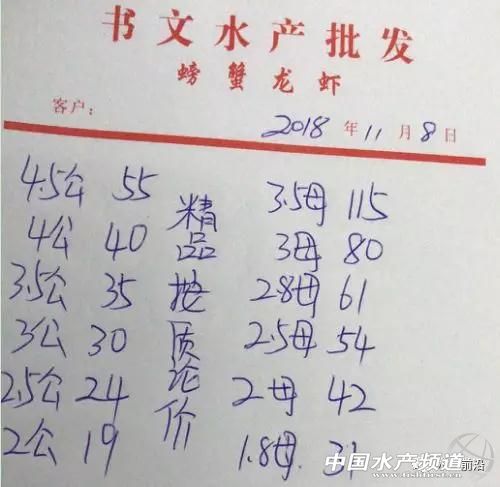 书文水产批发
螃蟹龙虾
客户：
2018 年 11 月 8 日
4.5公 55
4公 40
3.5公 35
3公 30
2.5公 24
2公 19
精品按质论价
3.5母 115
3母 80
2.8母 61
2.5母 54
2母 42
1.8母 31
中国水产频道
前沿